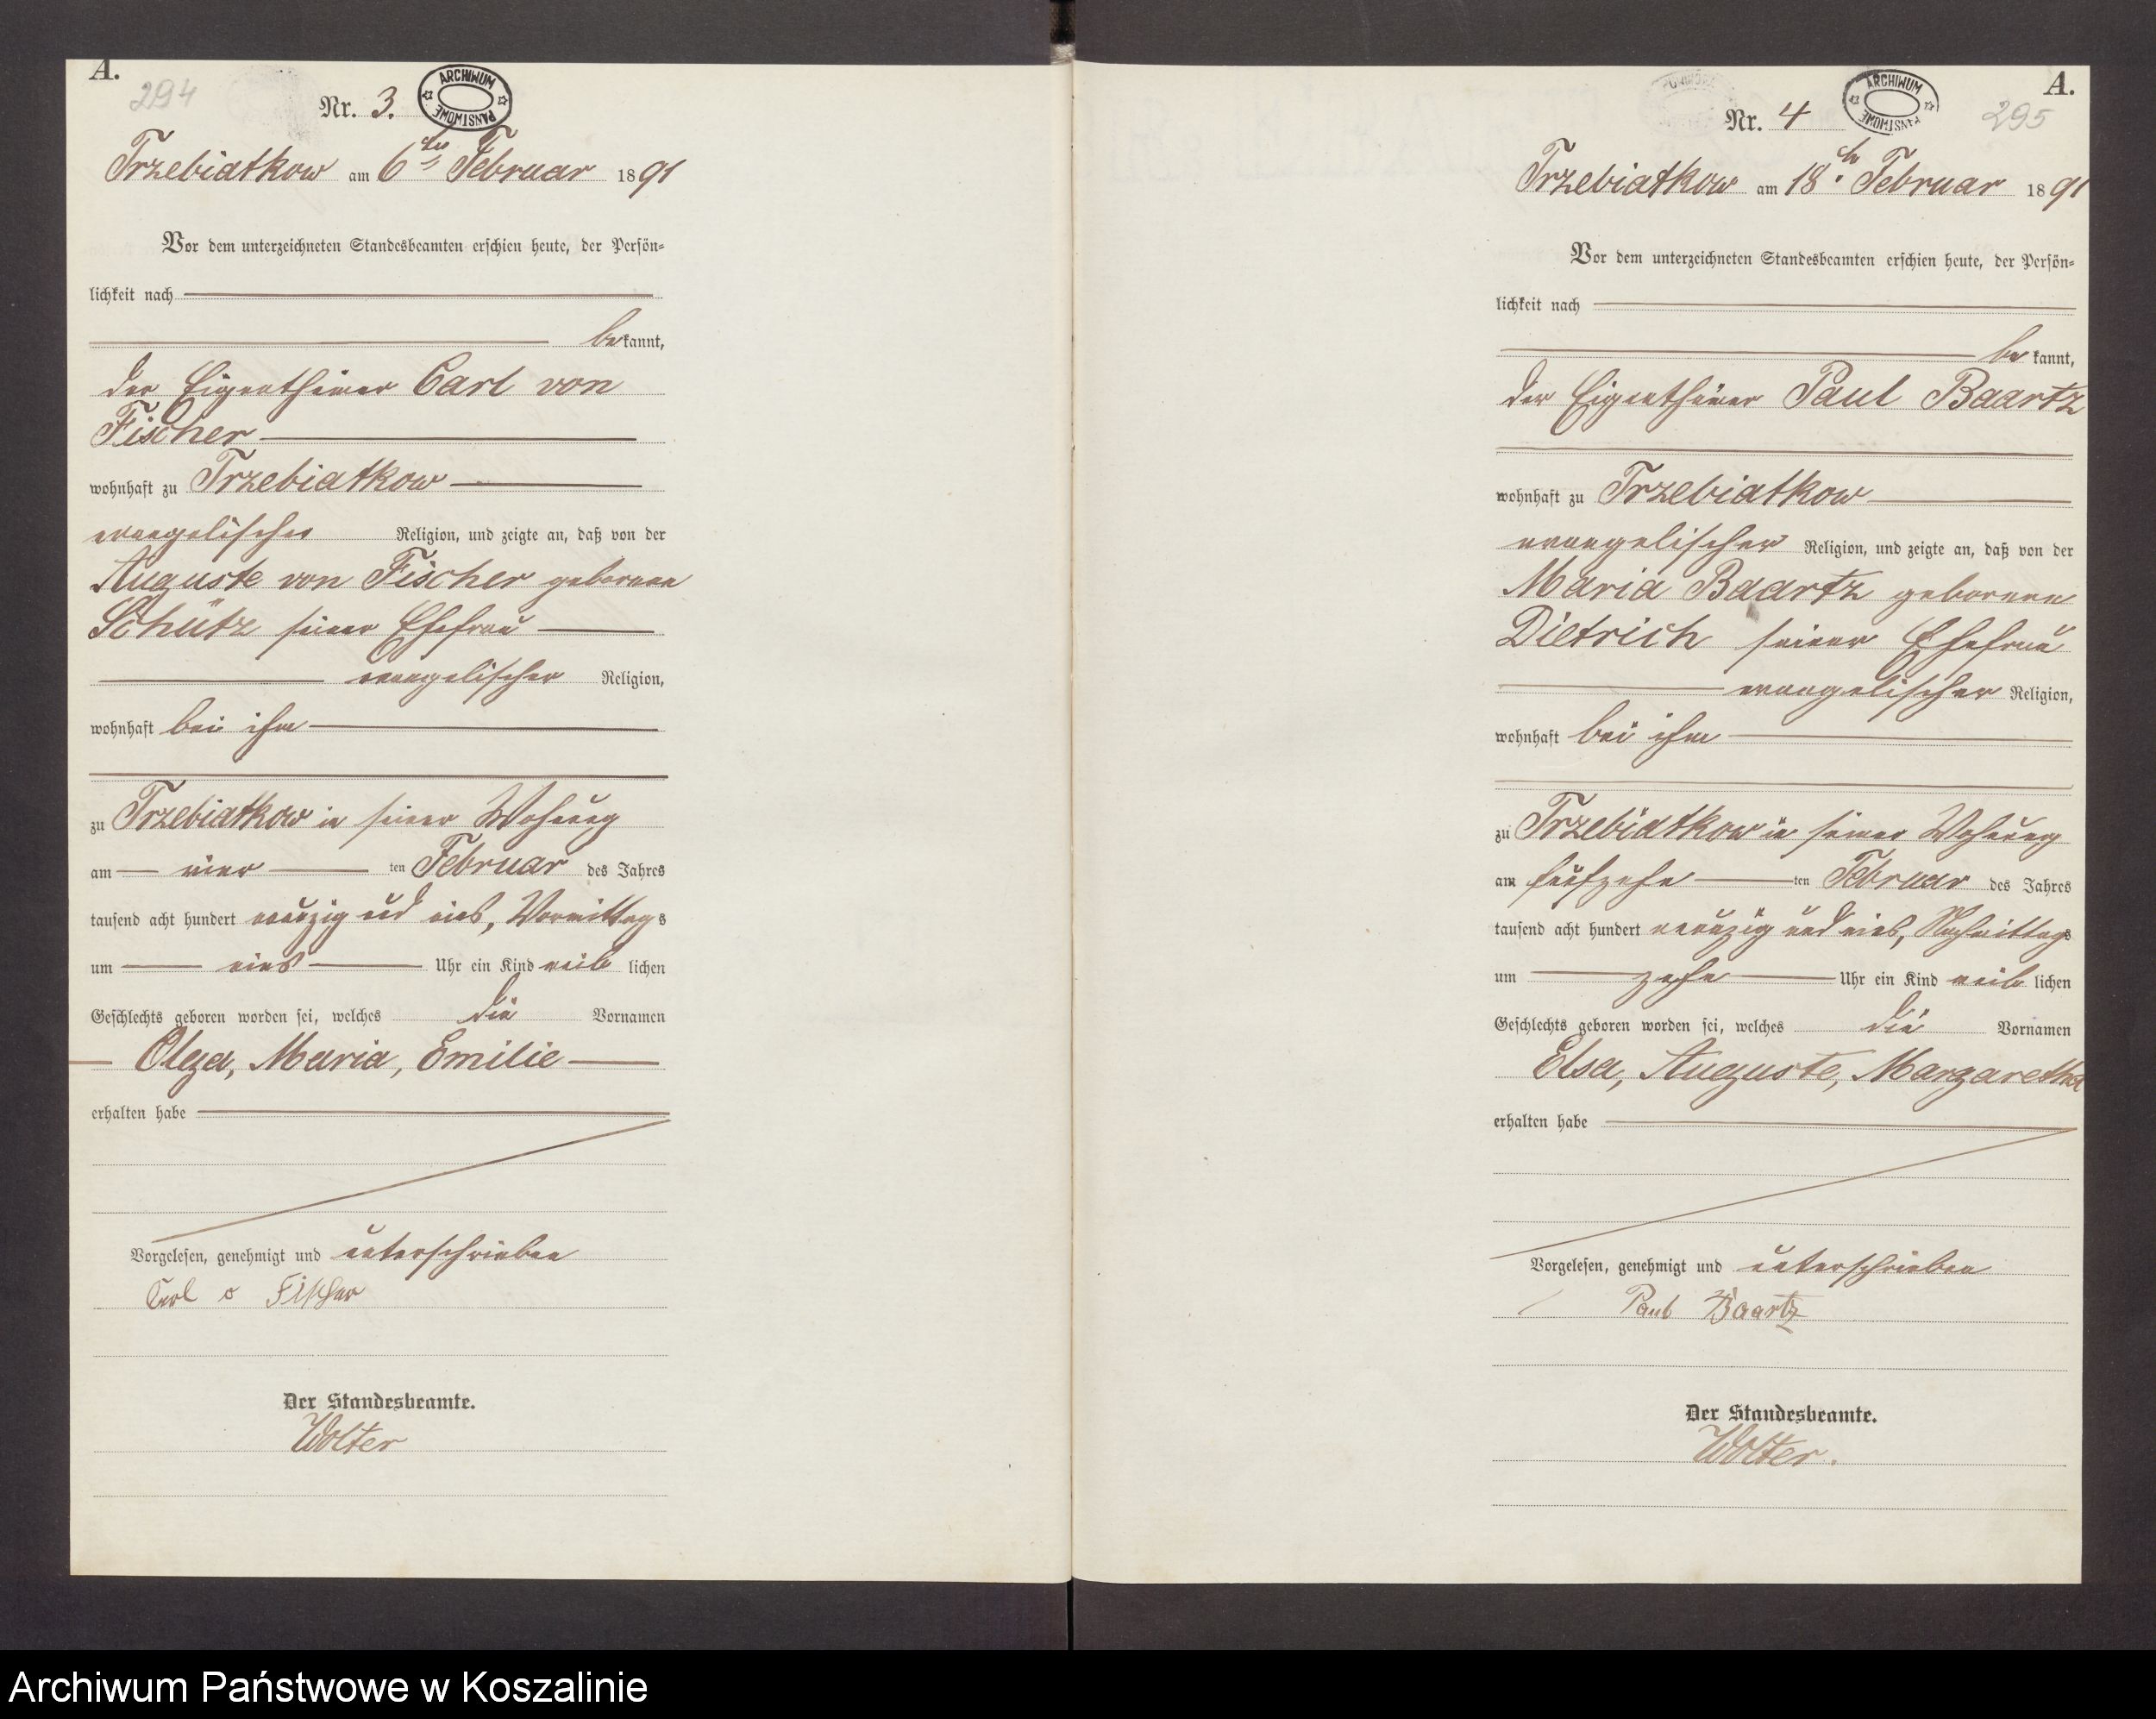 A.
294
Nr. 3.
ARCHIWUM PAŃSTWOWE
Trzebiatkow am 6ten Februar 1891
Vor dem unterzeichneten Standesbeamten erschien heute, der Persön-
lichkeit nach
bekannt,
der Eigenthümer Carl von
Fischer
wohnhaft zu Trzebiatkow
evangelischer Religion, und zeigte an, daß von der
Auguste von Fischer geborenen
Schütz seiner Ehefrau
evangelischer Religion,
wohnhaft bei ihm
zu Trzebiatkow in seiner Wohnung
am vier ten Februar des Jahres
tausend acht hundert neunzig und eins, Vormittags
um eins Uhr ein Kind weiblichen
Geschlechts geboren worden sei, welches die Vornamen
Olga, Maria, Emilie
erhalten habe
Vorgelesen, genehmigt und unterschrieben
Carl v Fischer
Der Standesbeamte.
Wolter
A.
295
Nr. 4
ARCHIWUM PAŃSTWOWE
Trzebiatkow am 18ten Februar 1891
Vor dem unterzeichneten Standesbeamten erschien heute, der Persön-
lichkeit nach
bekannt,
der Eigenthümer Paul Baartz
wohnhaft zu Trzebiatkow
evangelischer Religion, und zeigte an, daß von der
Maria Baartz geborenen
Dietrich seiner Ehefrau
evangelischer Religion,
wohnhaft bei ihm
zu Trzebiatkow in seiner Wohnung
am fünfzehn ten Februar des Jahres
tausend acht hundert neunzig und eins, Nachmittags
um zehn Uhr ein Kind weiblichen
Geschlechts geboren worden sei, welches die Vornamen
Elsa, Auguste, Margaretha
erhalten habe
Vorgelesen, genehmigt und unterschrieben
Paul Baartz
Der Standesbeamte.
Wolter.
Archiwum Państwowe w Koszalinie